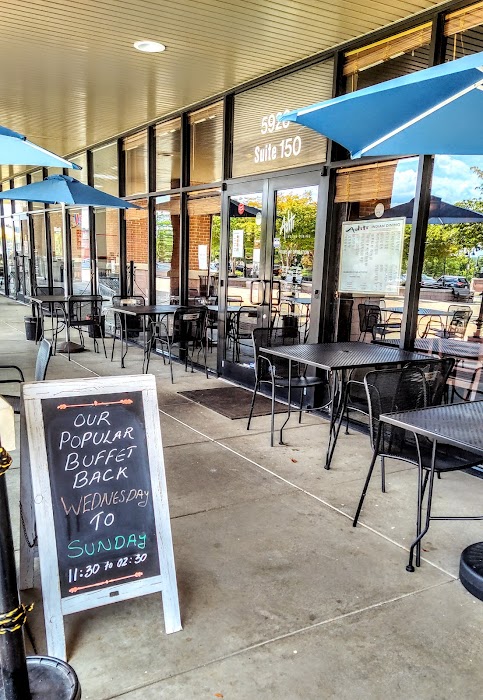 5920
Suite 150
OUR
POPULAR
BUFFET
BACK
WEDNESDAY
TO
SUNDAY
11:30 to 02:30